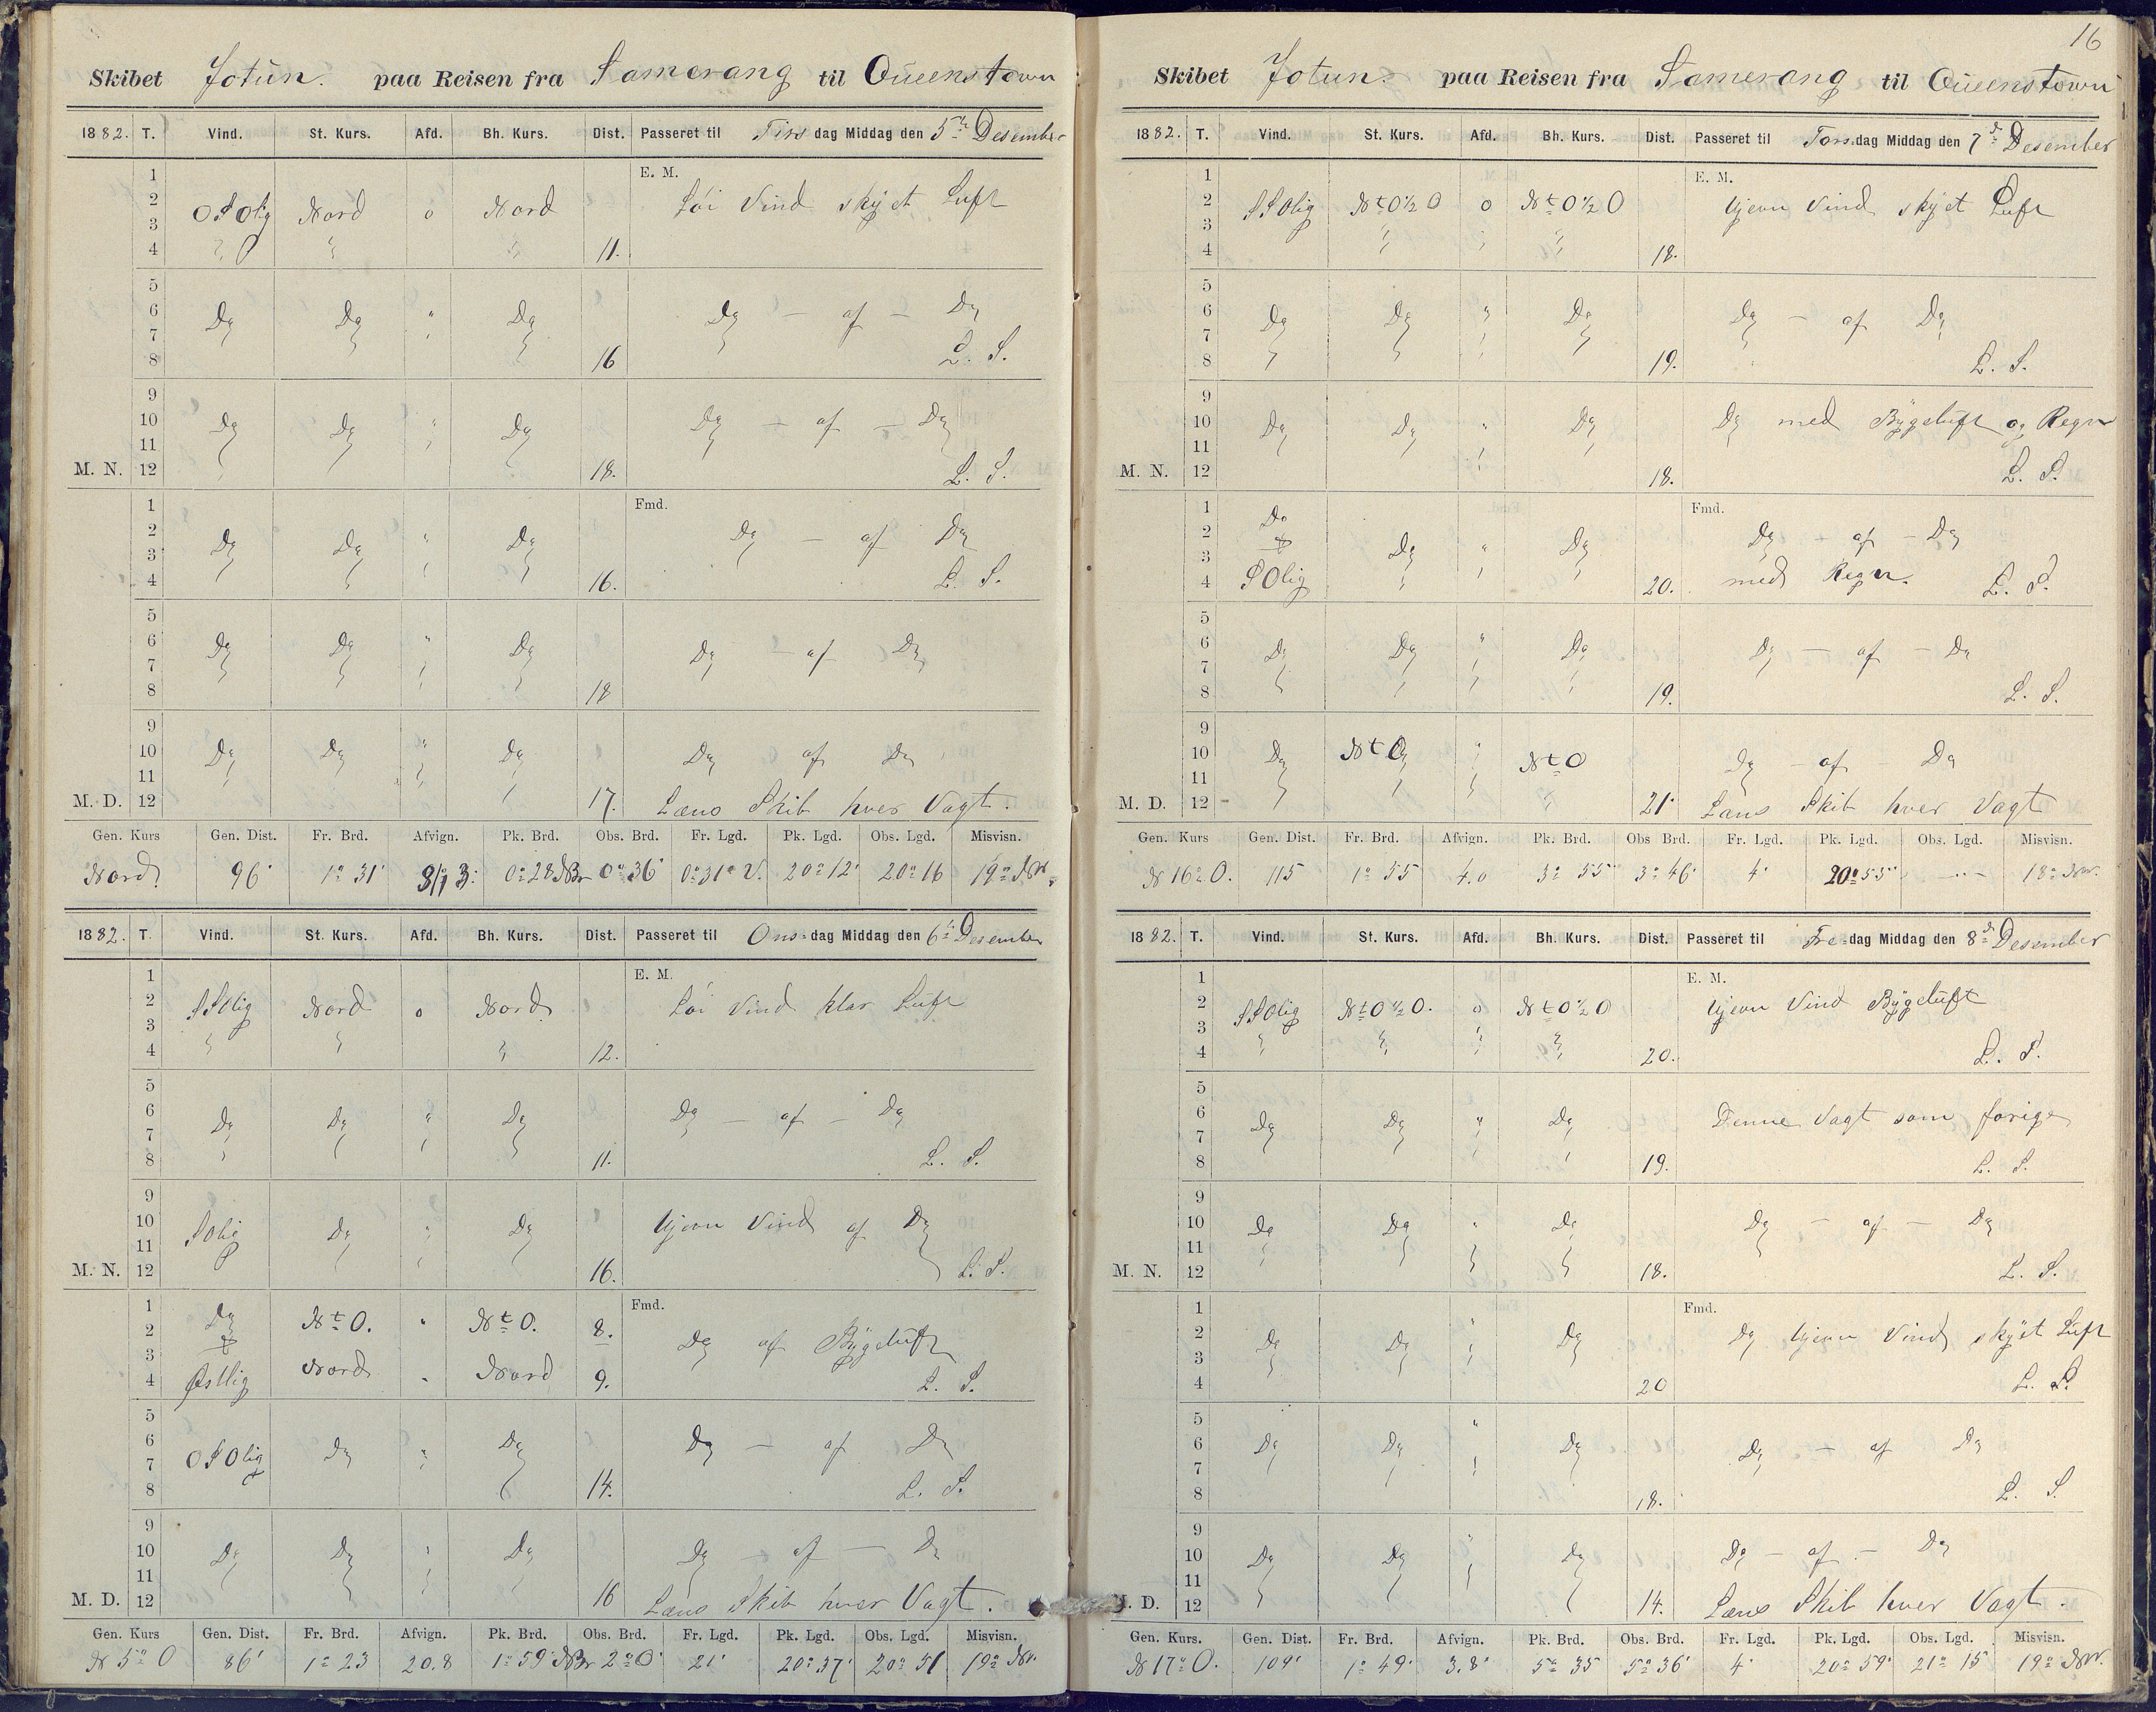 Skibet Jotun. paa Reisen fra Samerang til Queenstown
1882. T. Vind. St. Kurs. Afd. Bh. Kurs. Dist. Passeret til Tirsdag Middag den 5te Desember
E. M.
1
2 OSOlig Nord o Nord Löi Vind skyet Luft
3
4 11.
5
6 Do Do " Do Do — af — Do
7
8 16 L. S.
9
10 Do Do " Do Do — af — Do
11
M. N. 12 18. L. S.
1 Fmd.
2 Do Do " Do Do — af Do
3
4 16. L. S.
5
6 Do Do " Do Do — af Do
7
8 18
9
10 Do Do " Do Do af Do
11
M. D. 12 17. Læns Skib hver Vagt.
Gen. Kurs Gen. Dist. Fr. Brd. Afvign. Pk. Brd. Obs. Brd. Fr. Lgd. Pk. Lgd. Obs. Lgd. Misvisn.
Nord 96' 1° 31' 0° 28 NBr 0° 36' 0° 31' V. 20° 12' 20° 16 19° NW.
1882. T. Vind. St. Kurs. Afd. Bh. Kurs. Dist. Passeret til Onsdag Middag den 6te Desember
1 E. M.
2 SSOlig Nord o Nord Löi Vind klar Luft
3
4 12.
5
6 Do Do " Do Do — af — Do
7
8 11. L. S.
9
10 SOlig Do " Do Ujevn Vind af Do
11
M. N. 12 16. L. S.
1 Fmd.
2 Do NtO. " NtO. 8. Do af Bygeluft
3
4 Østlig Nord " Nord 9. L. S.
5
6 Do " Do Do — af Do
7 OSOlig
8 14. L. S.
9
10 Do Do " Do Do — af — Do
11
M. D. 12 16 Læns Skib hver Vagt.
Gen. Kurs Gen. Dist. Fr. Brd. Afvign. Pk. Brd. Obs. Brd. Fr. Lgd. Pk. Lgd. Obs. Lgd. Misvisn.
N 5° O 86' 1° 23 20.8 1° 59' NBr 2° 0' 21' 20° 37' 20° 51 19° NW.
16
Skibet Jotun. paa Reisen fra Samerang til Queenstown
1882. T. Vind. St. Kurs. Afd. Bh. Kurs. Dist. Passeret til Torsdag Middag den 7de Desember
1 E. M.
2 SSOlig NtO½O o NtO½O Ujevn Vind skyet Luft
3
4 18.
5
6 Do Do " Do Do — af Do
7
8 19. L. S.
9
10 Do Do " Do Do med Bygeluft og Regn
11
M. N. 12 18. L. S.
1 Fmd.
2 Do Do " Do Do af — Do
3
4 SOlig 20. med Regn. L. S.
5
6 Do Do " Do Do — af — Do
7
8 19. L. S.
9
10 Do NtO " NtO Do — af — Do
11
M. D. 12 21. Læns Skib hver Vagt
Gen. Kurs Gen. Dist. Fr. Brd. Afvign. Pk. Brd. Obs Brd. Fr. Lgd. Pk. Lgd. Obs. Lgd. Misvisn.
N 16° O. 115 1° 55 4.0 3° 55 3° 46' 4' 20° 55' 18° NW.
1882. T. Vind. St. Kurs. Afd. Bh. Kurs. Dist. Passeret til Fredag Middag den 8de Desember
1 E. M.
2 SSOlig NtO½O. o NtO½O Ujevn Vind Bygeluft
3
4 20. L. S.
5
6 Do Do " Do Denne Vagt som forige
7
8 19. L. S.
9
10 Do Do " Do Do — af — Do
11
M. N. 12 18. L. S.
1 Fmd.
2 Do Do " Do Do Ujevn Vind skyet Luft
3
4 20 L. S.
5
6 Do Do " Do Do — af Do
7
8 18. L. S.
9
10 Do Do " Do Do — af — Do
11
D. 12 14. Læns Skib hver Vagt.
Gen. Kurs. Gen. Dist. Fr. Brd. Afvign. Pk. Brd. Obs. Brd. Fr. Lgd. Pk. Lgd. Obs. Lgd. Misvisn.
N 17° O. 109' 1° 49' 3.8' 5° 35 5° 36' 4' 20° 59' 21° 15 19° NW.